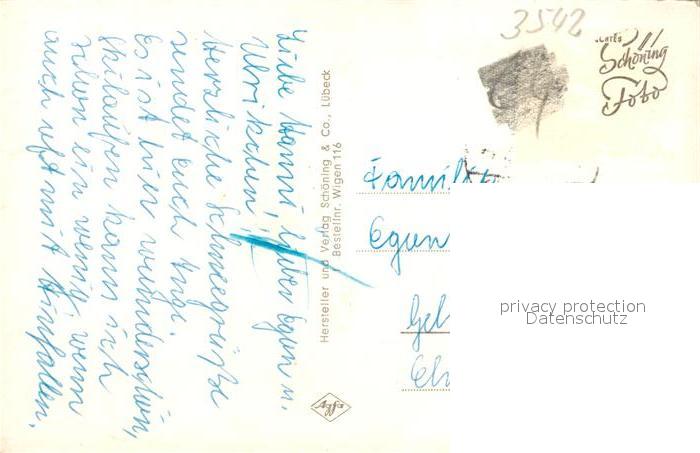 Liebe Hanni! Lieber Egon u.
Ulrikchen!
Herzliche Schneegrüße
sendet euch Inge.
Es ist hier wunderschön,
Skilaufen kann ich
schon ein wenig, wenn
auch oft mit Hinfallen.
Hersteller und Verlag Schöning & Co., Lübeck
Bestellnr. Wigen 116
Agfa
3542
Schöning
Foto
Familie
Egon
privacy protection
Datenschutz